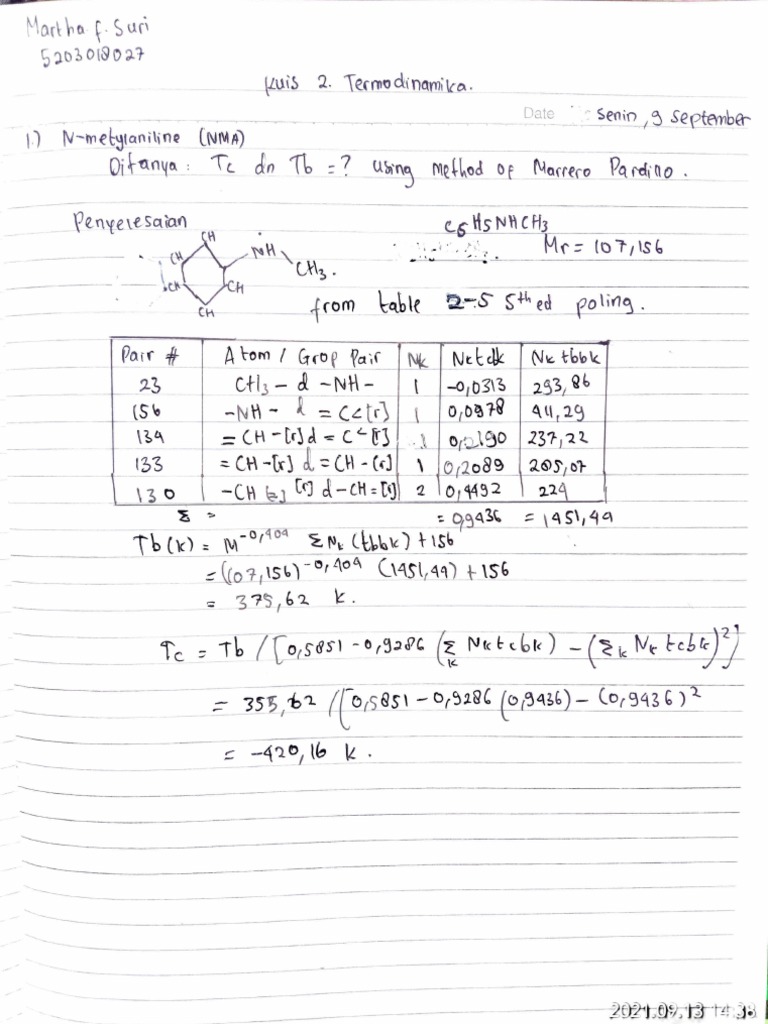 Martha f. Suri
5203018027
Kuis 2. Termodinamika.
Date Senin, 9 September
1.) N-metylaniline (NMA)
Ditanya : Tc dn Tb = ? using method of Marrero Pardillo.
Penyelesaian
C6H5NHCH3
Mr = 107,156
CH NH CH3.
CH
CH CH
CH
from table 2-5 5th ed poling.
Pair # Atom / Grop Pair Nk Nktcbk Nk tbbk
23 CH3 - d -NH- 1 -0,0313 293,86
156 -NH- d = C<[r] 1 0,0978 491,29
134 = CH -[r] d = C<[r] 0,2190 237,22
133 = CH -[r] d = CH -[r] 1 0,2089 205,07
130 -CH [r] d -CH= [r] 2 0,4492 224
Σ = = 0,9436 = 1451,44
Tb (k) = M^-0,404 Σ Nk (tbbk) + 156
= (107,156)^-0,404 (1451,44) + 156
= 375,62 k.
Tc = Tb / [0,5851 - 0,9286 (Σk Nk tcbk) - (Σk Nk tcbk)²]
= 355,62 / [0,5851 - 0,9286 (0,9436) - (0,9436)²
= -420,16 k.
2021.09.13 14:38